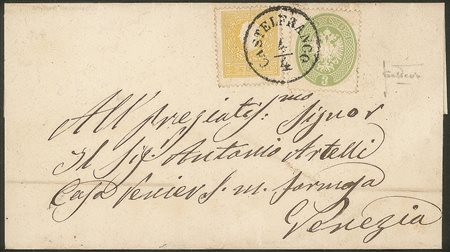 CASTELFRANCO
4/4
3
All pregiatis.mo Signor
Il Sig.r Antonio Artelli
Casa Venier S. M. formosa
Venezia